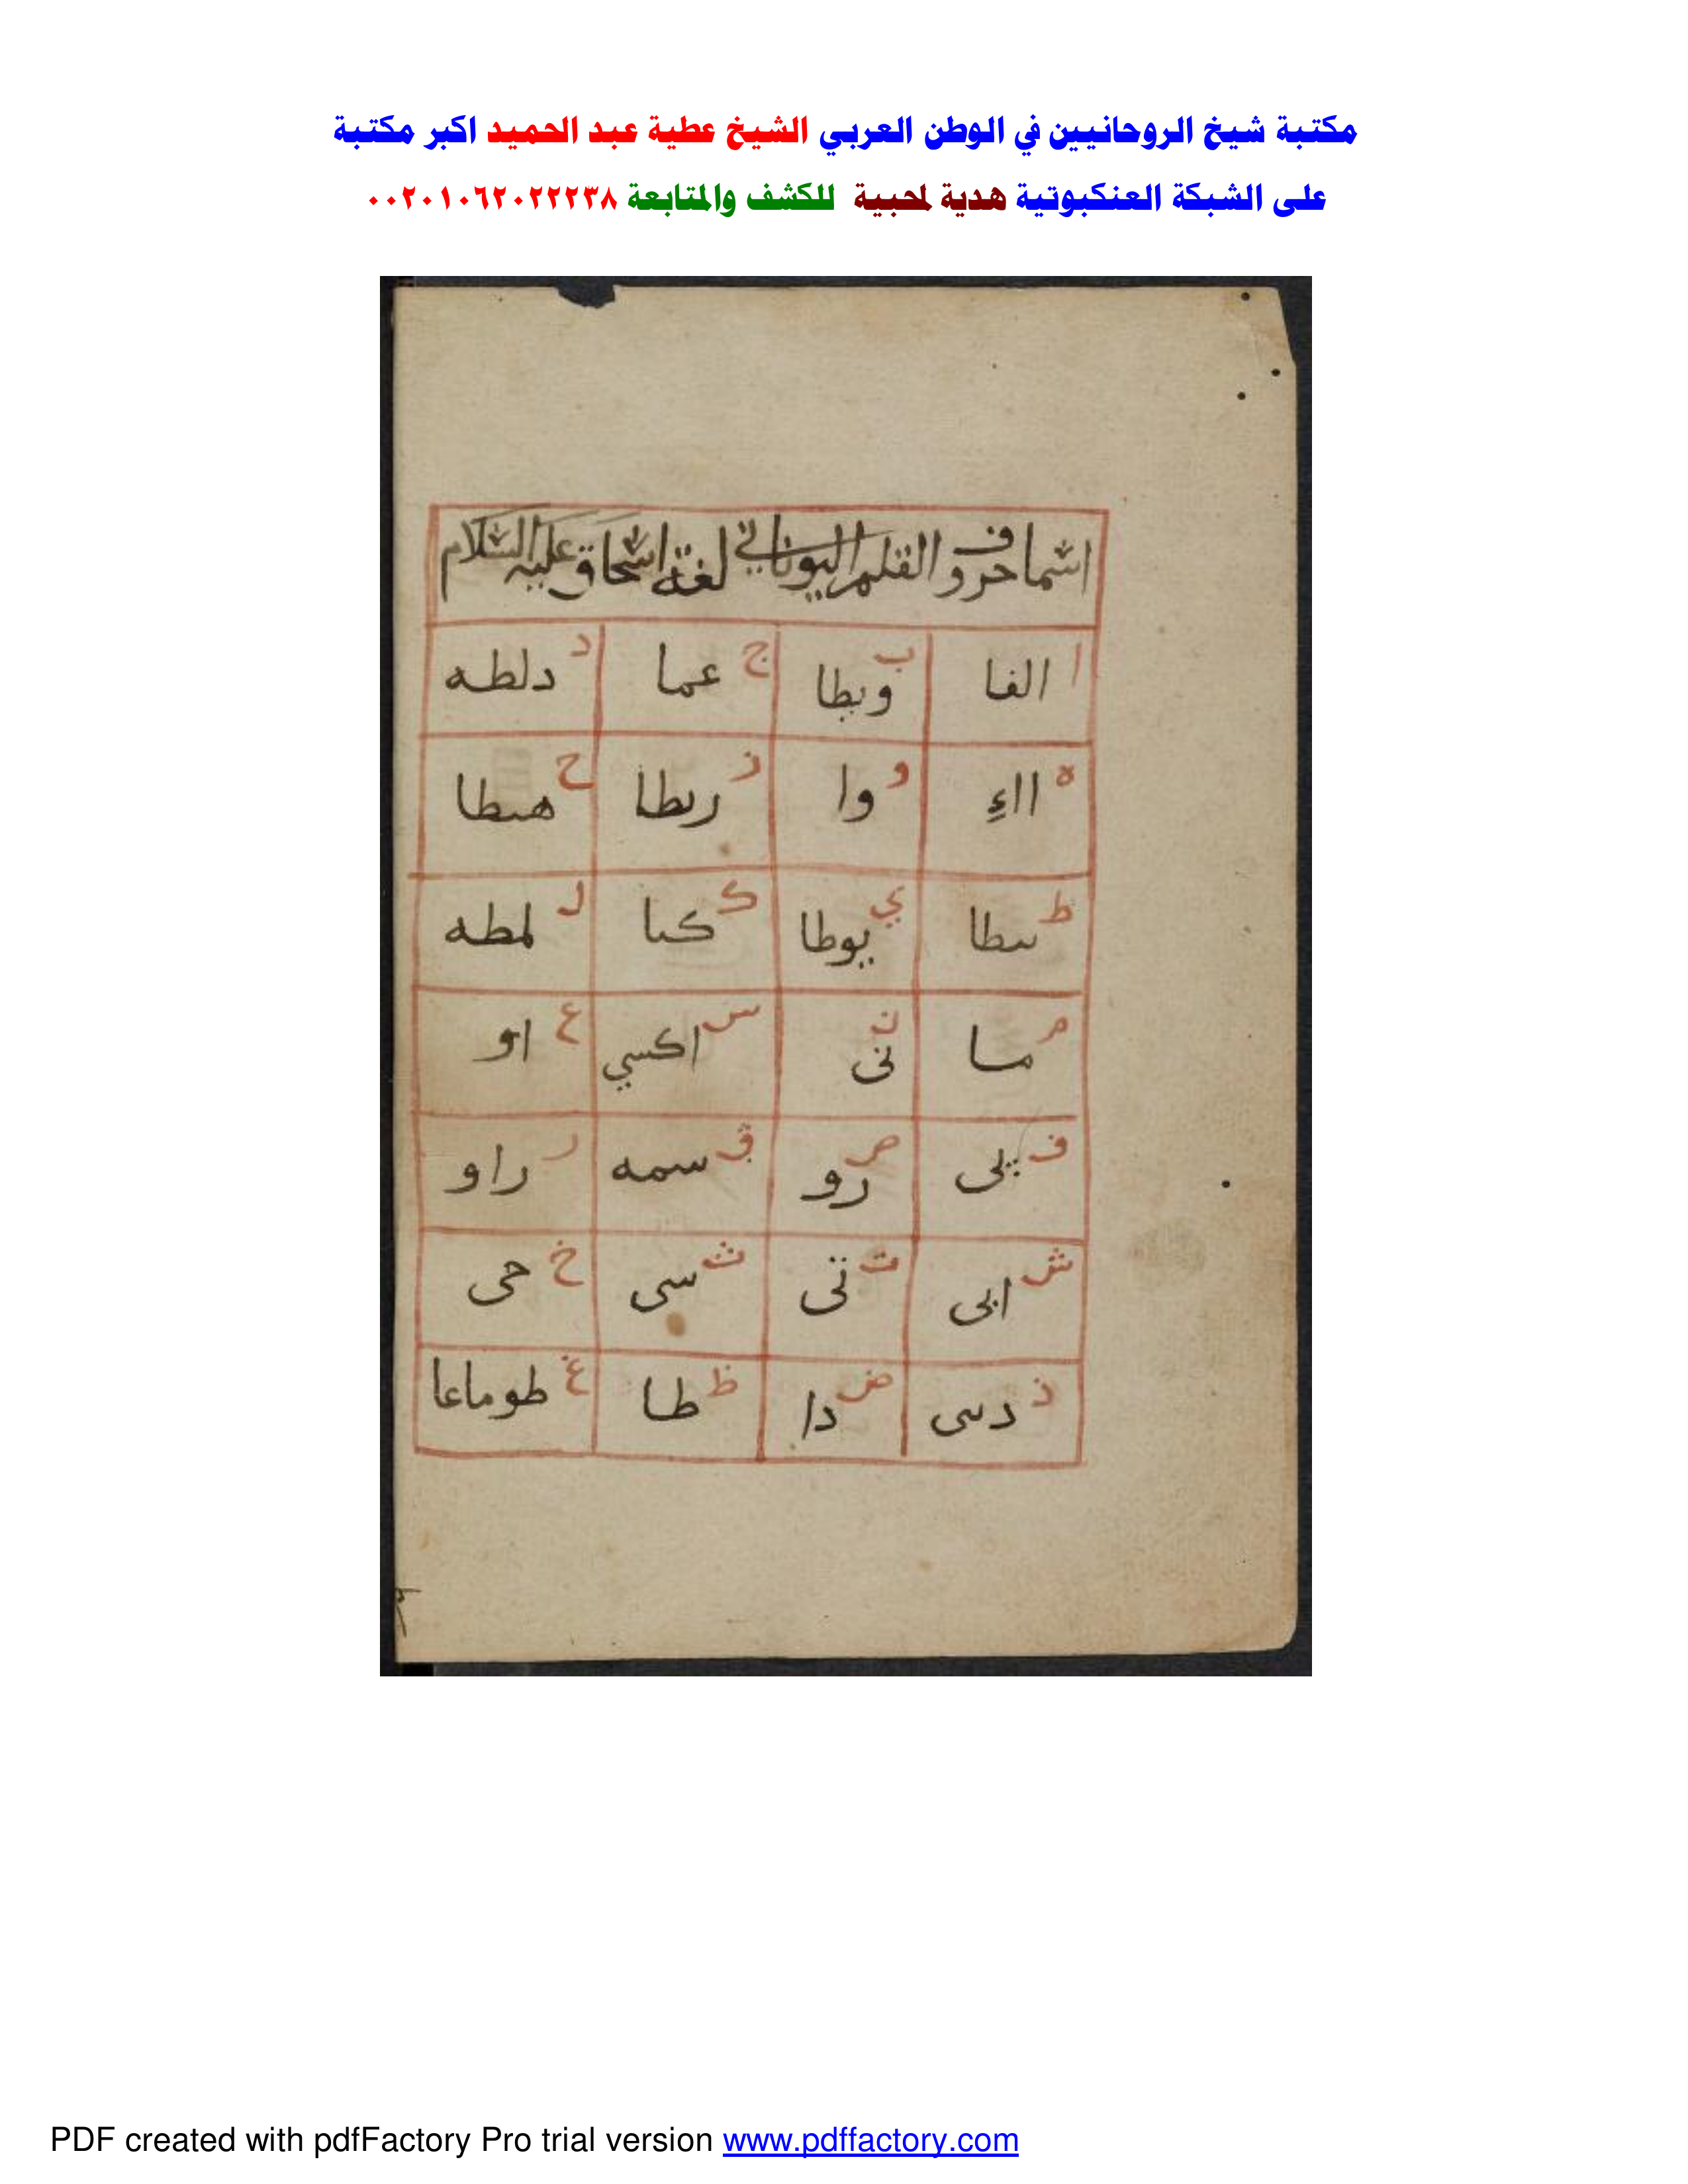 مكتبة شيخ الروحانيين في الوطن العربي الشيخ عطية عبد الحميد اكبر مكتبة
على الشبكة العنكبوتية هدية لمحبية للكشف والمتابعة ٠٠٢٠١٠٦٢٠٢٢٢٣٨
اسما حروف القلم اليوناني لغة اسحاق عليه السلام
ا الفا ب ويطا ج عما د دلطه
ه ااءِ و وا ز ريطا ح هيطا
ط يوطا ي كبا ك لمطه ل
م مسا ن نى س اكسي ع او
ف پلى ص رو ق سمه ر راو
ش ابى ت تى ث سى خ حى
ذ دسى ض دا ظ طا غ طوماعا
PDF created with pdfFactory Pro trial version www.pdffactory.com